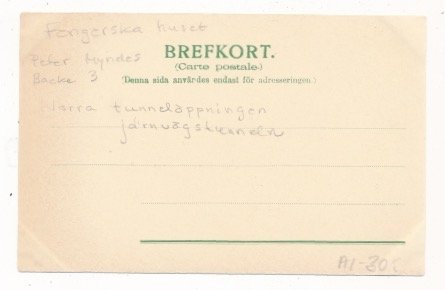 Fengerska huset
BREFKORT.
(Carte postale.)
Peter Myndes
Backe 3
(Denna sida användes endast för adresseringen.)
Norra tunnelöppningen
järnvägstunneln
A1-30